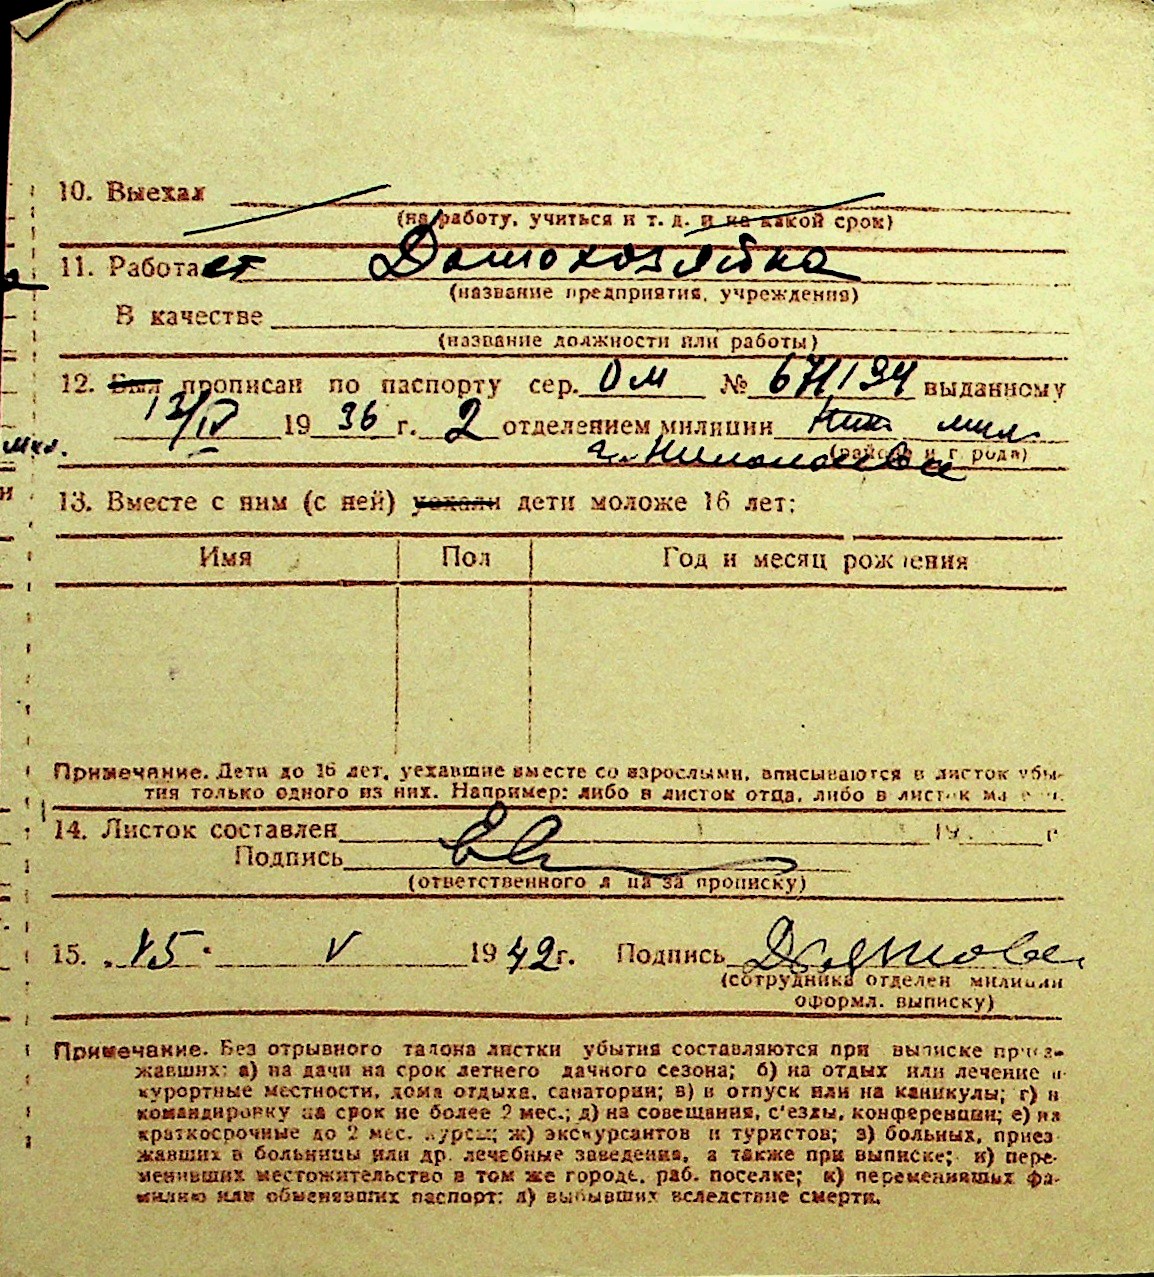 10. Выехал
(на работу, учиться и т. д. и на какой срок)
11. Работает Домохозяйка
(название предприятия, учреждения)
В качестве
(название должности или работы)
12. Был прописан по паспорту сер. ОМ № 671194 выданному
13/IV 1936 г. 2 отделением милиции мил
мил. г. Николаева (района и города)
13. Вместе с ним (с ней) уехали дети моложе 16 лет:
Имя Пол Год и месяц рождения
Примечание. Дети до 16 лет, уехавшие вместе со взрослыми, вписываются в листок убы-
тия только одного из них. Например: либо в листок отца, либо в листок
14. Листок составлен 19 г
Подпись
(ответственного лица за прописку)
15. 15. V 1942 г. Подпись
(сотрудника отделен милиции
оформл. выписку)
Примечание. Без отрывного талона листки убытия составляются при выписке приез-
жавших: а) на дачи на срок летнего дачного сезона; б) на отдых или лечение в
курортные местности, дома отдыха, санатории; в) в отпуск или на каникулы; г) в
командировку на срок не более 2 мес.; д) на совещания, с'езды, конференции; е) на
краткосрочные до 2 мес. курсы; ж) экскурсантов и туристов; з) больных, приез
жавших в больницы или др. лечебные заведения, а также при выписке; и) пере-
менивших местожительство в том же городе, раб. поселке; к) переменивших фа-
милию или обменявших паспорт; л) выбывших вследствие смерти.